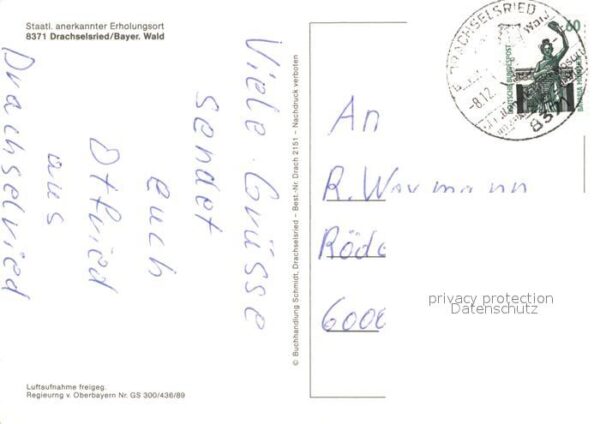 Staatl. anerkannter Erholungsort
8371 Drachselsried/Bayer. Wald
Viele Grüsse
sendet
euch
Otfried
aus
Drachselsried
Luftaufnahme freigeg.
Regierung v. Oberbayern Nr. GS 300/436/89
© Buchhandlung Schmidt, Drachselsried – Best.-Nr. Drach 2151 – Nachdruck verboten
DRACHSELSRIED
-8.12.
8371
60
DEUTSCHE BUNDESPOST
BAVARIA MÜNCHEN
An
R. Waxmann
Röde
6000
privacy protection
Datenschutz